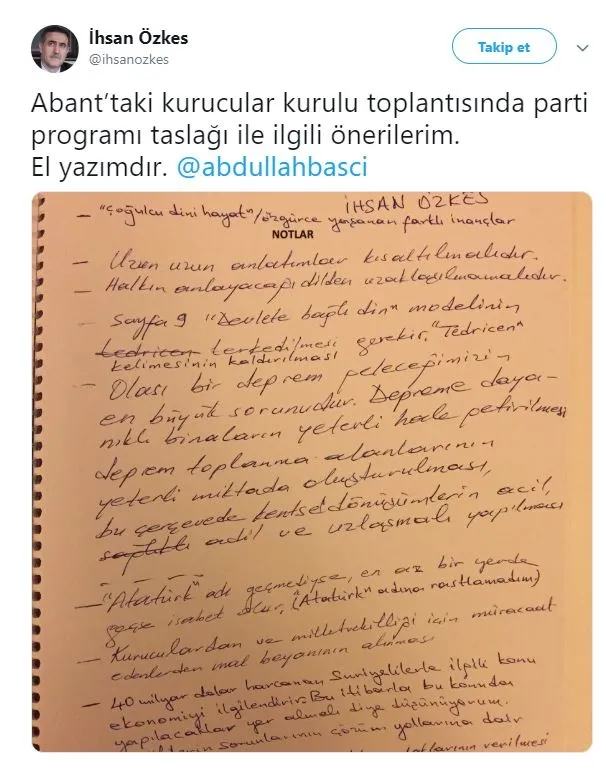 İhsan Özkes
@ihsanozkes
Takip et
Abant’taki kurucular kurulu toplantısında parti
programı taslağı ile ilgili önerilerim.
El yazımdır. @abdullahbasci
İHSAN ÖZKES
- "çoğulcu dini hayat"/özgürce yaşanan farklı inançlar
NOTLAR
- Uzun uzun anlatımlar kısaltılmalıdır.
- Halkın anlayacağı dilden uzaklaşılmamalıdır.
- Sayfa 9 "Devlete bağlı din" modelinin
tedricen terkedilmesi gerekir, "Tedricen"
kelimesinin kaldırılması
- Olası bir deprem geleceğimizin
en büyük sorunudur. Depreme daya-
nıklı binaların yeterli hale getirilmesi
deprem toplanma alanlarının
yeterli miktada oluşturulması,
bu çerçevede kentsel dönüşümlerin acil,
sağlıklı adil ve uzlaşmalı yapılması
- "Atatürk" adı geçmediyse, en az bir yerde
geçse isabet olur. ("Atatürk" adına rastlamadım)
- Kuruculardan ve milletvekilliği için müracaat
edenlerden mal beyanının alınması
- 40 milyar dolar harcanan Suriyelilerle ilgili konu
ekonomiyi ilgilendirir. Bu itibarla bu konuda
yapılacaklar yer almalı diye düşünüyorum.
sorunlarının çözüm yollarına dair
verilmesi